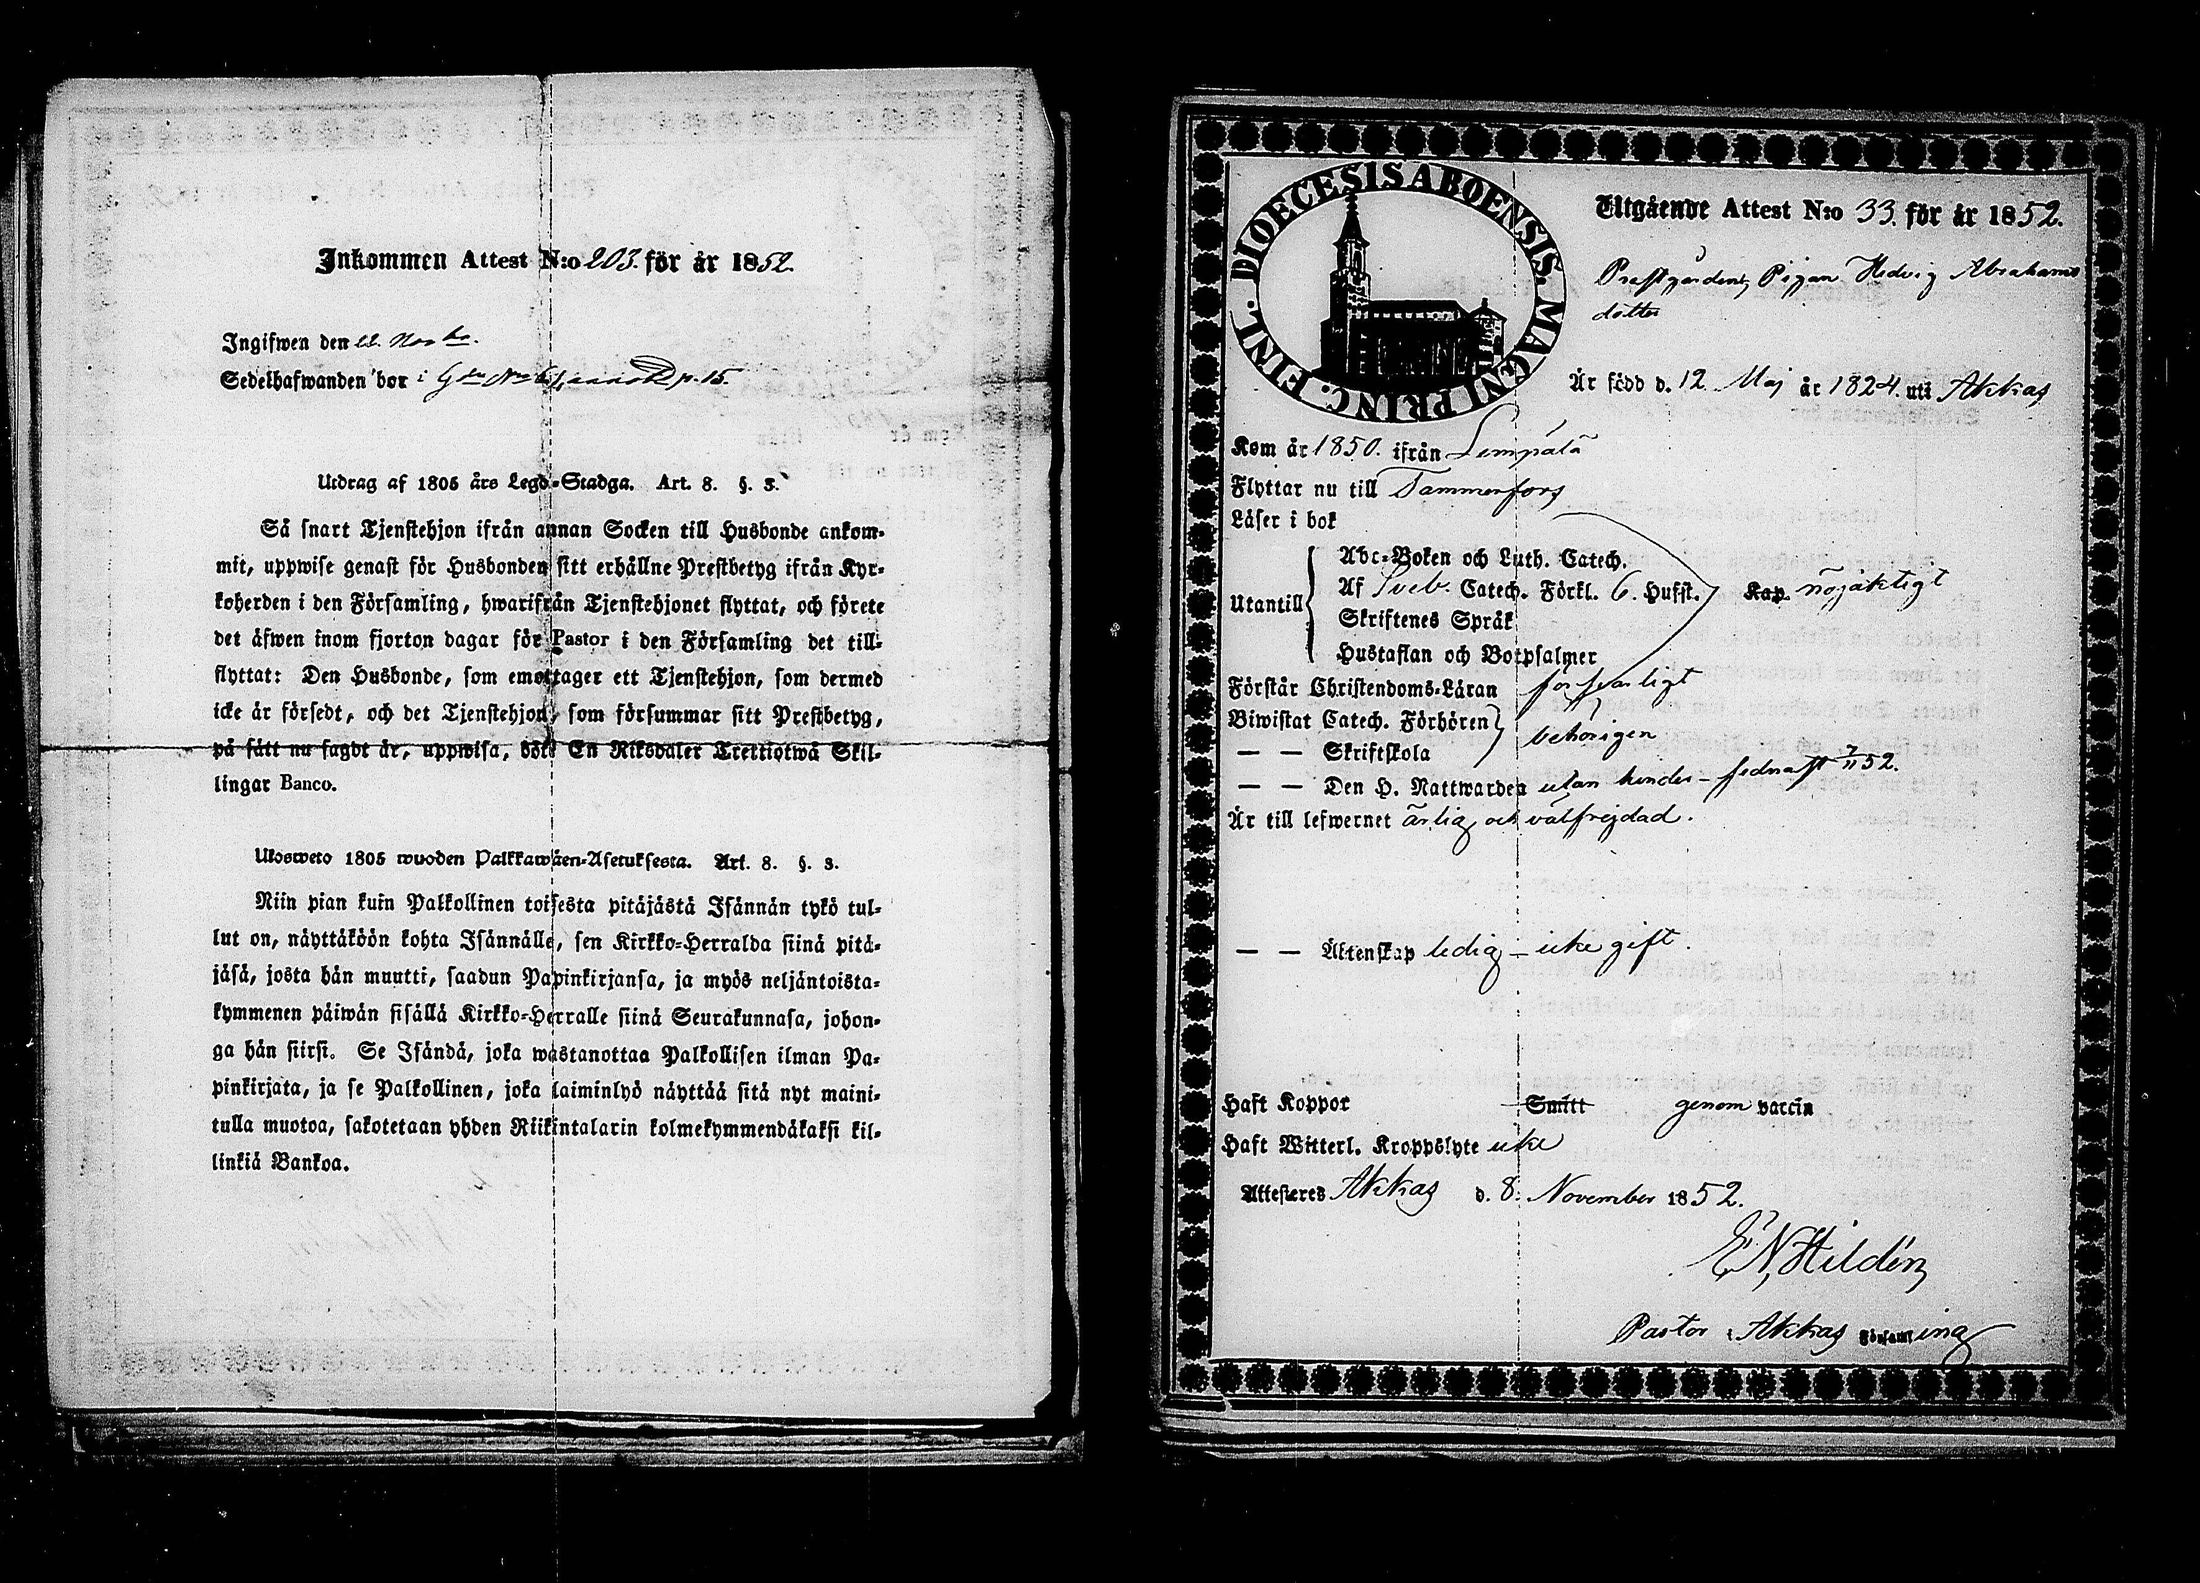 Inkommen Attest N:o 203. för år 1852.
Ingifwen den 22. Novbr.
Sedelhafwanden bor i Gdn No p. 15.
Utdrag af 1805 års Legd-Stadga. Art. 8. §. 3.
Så snart Tjenstehjon ifrån annan Socken till Husbonde ankom-
mit, uppwise genast för Husbonden sitt erhållne Prestbetyg ifrån Kyr-
koherden i den Församling, hwarifrån Tjenstehjonet flyttat, och förete
det äfwen inom fjorton dagar för Pastor i den Församling det till-
flyttat: Den Husbonde, som emottager ett Tjenstehjon, som dermed
icke är försedt, och det Tjenstehjon, som försummar sitt Prestbetyg,
på sätt nu sagdt är, uppwisa, böte En Riksdaler Trettiotwå Skil-
lingar Banco.
Ulosweto 1805 wuoden Palkkawäen-Asetuksesta. Art. 8. §. 3.
Niin pian kuin Palkollinen toisesta pitäjästä Isännän tykö tul-
lut on, näyttäköön kohta Isännälle, sen Kirkko-Herralda siinä pitä-
jäsä, josta hän muutti, saadun Papinkirjansa, ja myös neljäntoista-
kymmenen päiwän sisällä Kirkko-Herralle siinä Seurakunnasa, johon-
ga hän siirsi. Se Isändä, joka wastanottaa Palkollisen ilman Pa-
pinkirjata, ja se Palkollinen, joka laiminlyö näyttää sitä nyt maini-
tulla muotoa, sakotetaan yhden Riikintalarin kolmekymmendäkaksi kil-
linkiä Bankoa.
DIOECESIS ABOENSIS. MAGNI PRINC. FINL.
Utgående Attest N:o 33. för år 1852.
Prestgårdens Pigan Hedvig Abrahams
dotter
Är född d. 12 Maj år 1824. uti Akkas
Kom år 1850. ifrån Lempälä
Flyttar nu till Tammerfors
Läser i bok
Utantill
Abc-Boken och Luth. Catech.
Af Sveb. Catech. Förkl. 6. Hufst. Kap. nöjaktigt
Skriftenes Språk
Hustaflan och Botpsalmer
Förstår Christendoms-Läran försvarligt
Biwistat Catech. Förhören
— — Skriftskola behörigen
— — Den H. Nattwarden utan hinder – sednast 7/11 52.
Är till lefwernet ärlig och välfrejdad.
— — Äktenskap ledig – icke gift.
Haft Koppor Smitt genom vaccin
Haft Witterl. Kroppslyte icke
Attesteres Akkas d. 8. November 1852.
E N Hildén
Pastor i Akkas Församling